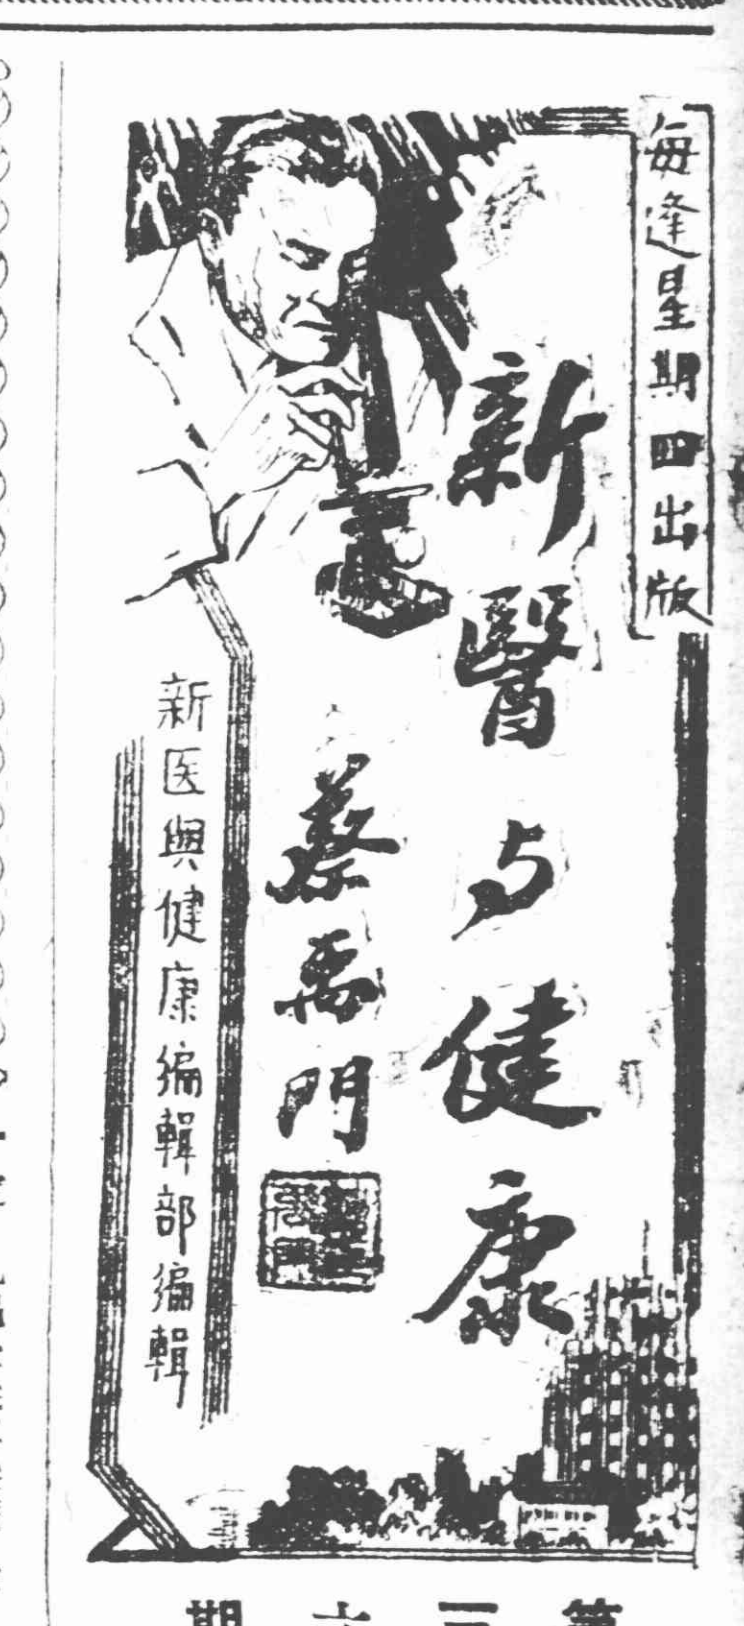 每逢星期四出版
新醫与健康
蔡禹門
新医與健康編輯部編輯